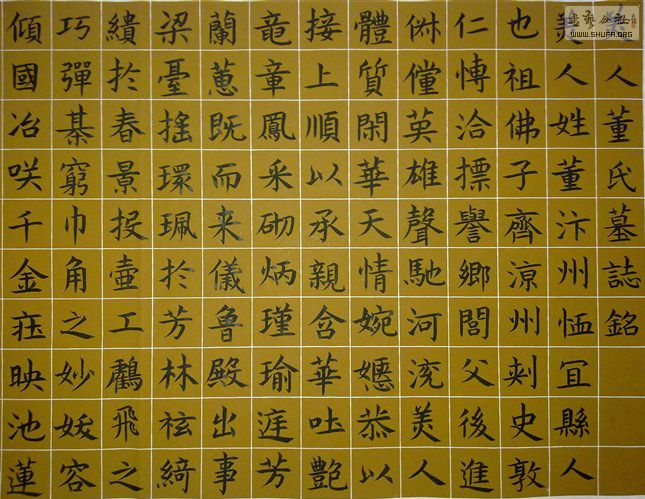 人董氏墓誌銘
美人姓董汴州恤宜縣人
也祖佛子齊涼州刾史敦
仁愽洽摽譽鄉閭父後進
俶儻英雄聲馳河流美人
體質閑華天情婉嫕恭以
接上順以承親含華吐艷
竜章鳳采砌炳瑾瑜庭芳
蘭蕙既而来儀魯殿出事
梁臺搖環珮於芳林袨綺
繢於春景投壺工鸖飛之
巧彈棊窮巾角之妙媛容
傾國冶咲千金莊映池蓮
WWW.SHUFA.ORG